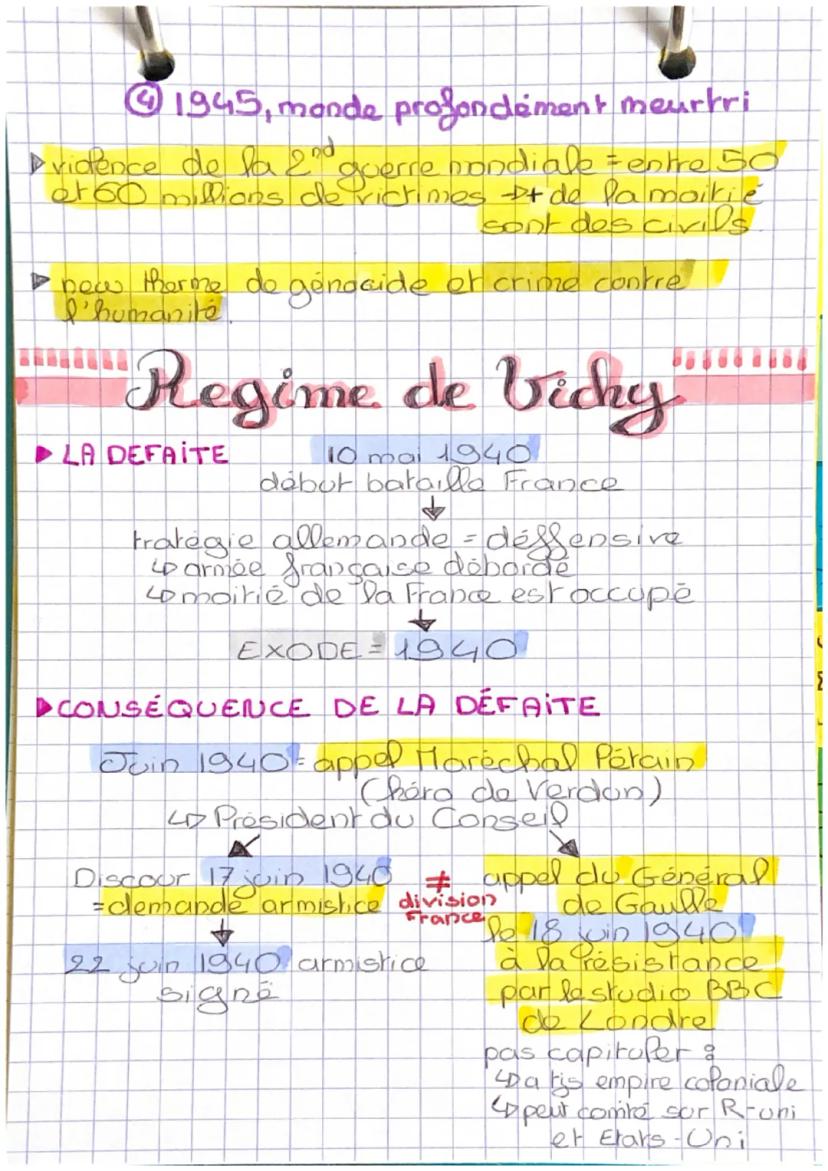 ④ 1945, monde profondément meurtri
violence de la 2nd guerre mondiale = entre 50
et 60 millions de victimes → + de la moitié
sont des civils
new therme de génocide et crime contre
l'humanité.
Regime de Vichy
LA DEFAITE
10 mai 1940
début bataille France
tratégie allemande = déffensive
↳ armée française débordé
↳ moitié de la France est occupé
EXODE = 1940
CONSÉQUENCE DE LA DÉFAITE
Juin 1940 = appel Maréchal Pétain
(héro de Verdon)
↳ Président du Conseil
Discour 17 juin 1940
= demande armistice
22 juin 1940 armistice
signé
≠
division
France
appel du Général
de Gaulle
le 18 juin 1940
à la résistance
par le studio BBC
de Londre
pas capituler :
↳ a tjs empire coloniale
↳ peut comté sur R-uni
et Etats-Uni